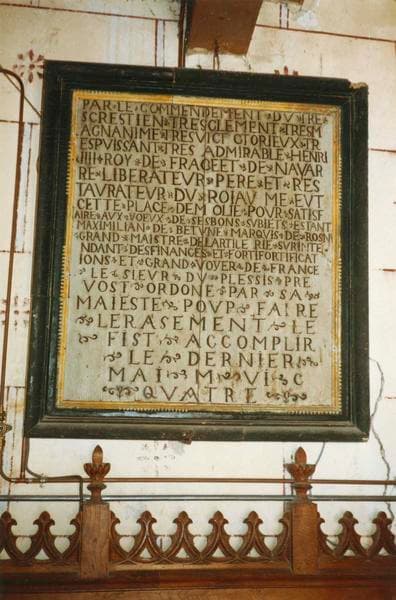 PAR LE COMMENDEMENT DV TRE
SCRESTIEN TRESCLEMENT TRESM
AGNANIME TRESVICTGLORIEVX TR
ESPVISSANT TRES ADMIRABLE HENRI
IIII ROY DE FRACE ET DE NAVAR
RE LIBERATEVR PERE ET RES
TAVRATEVR DV ROIAVME EVT
CETTE PLACE DEMOLIE POVR SATISF
AIRE AVX VOEVX DE SES BONS SVBIETS ESTANT
MAXIMILIAN DE BETVNE MARQVIS DE ROSNI
GRAND MAISTRE DE LARTILERIE SVRINTE
NDANT DES FINANCES ET FORTIFORTIFICAT
IONS ET GRAND VOYER DE FRANCE
LE SIEVR DV PLESSIS PRE
VOST ORDONE PAR SA
MAIESTE POVR FAIRE
LE RASEMENT LE
FIST ACCOMPLIR
LE DERNIER
MAI M VI C
QVATRE